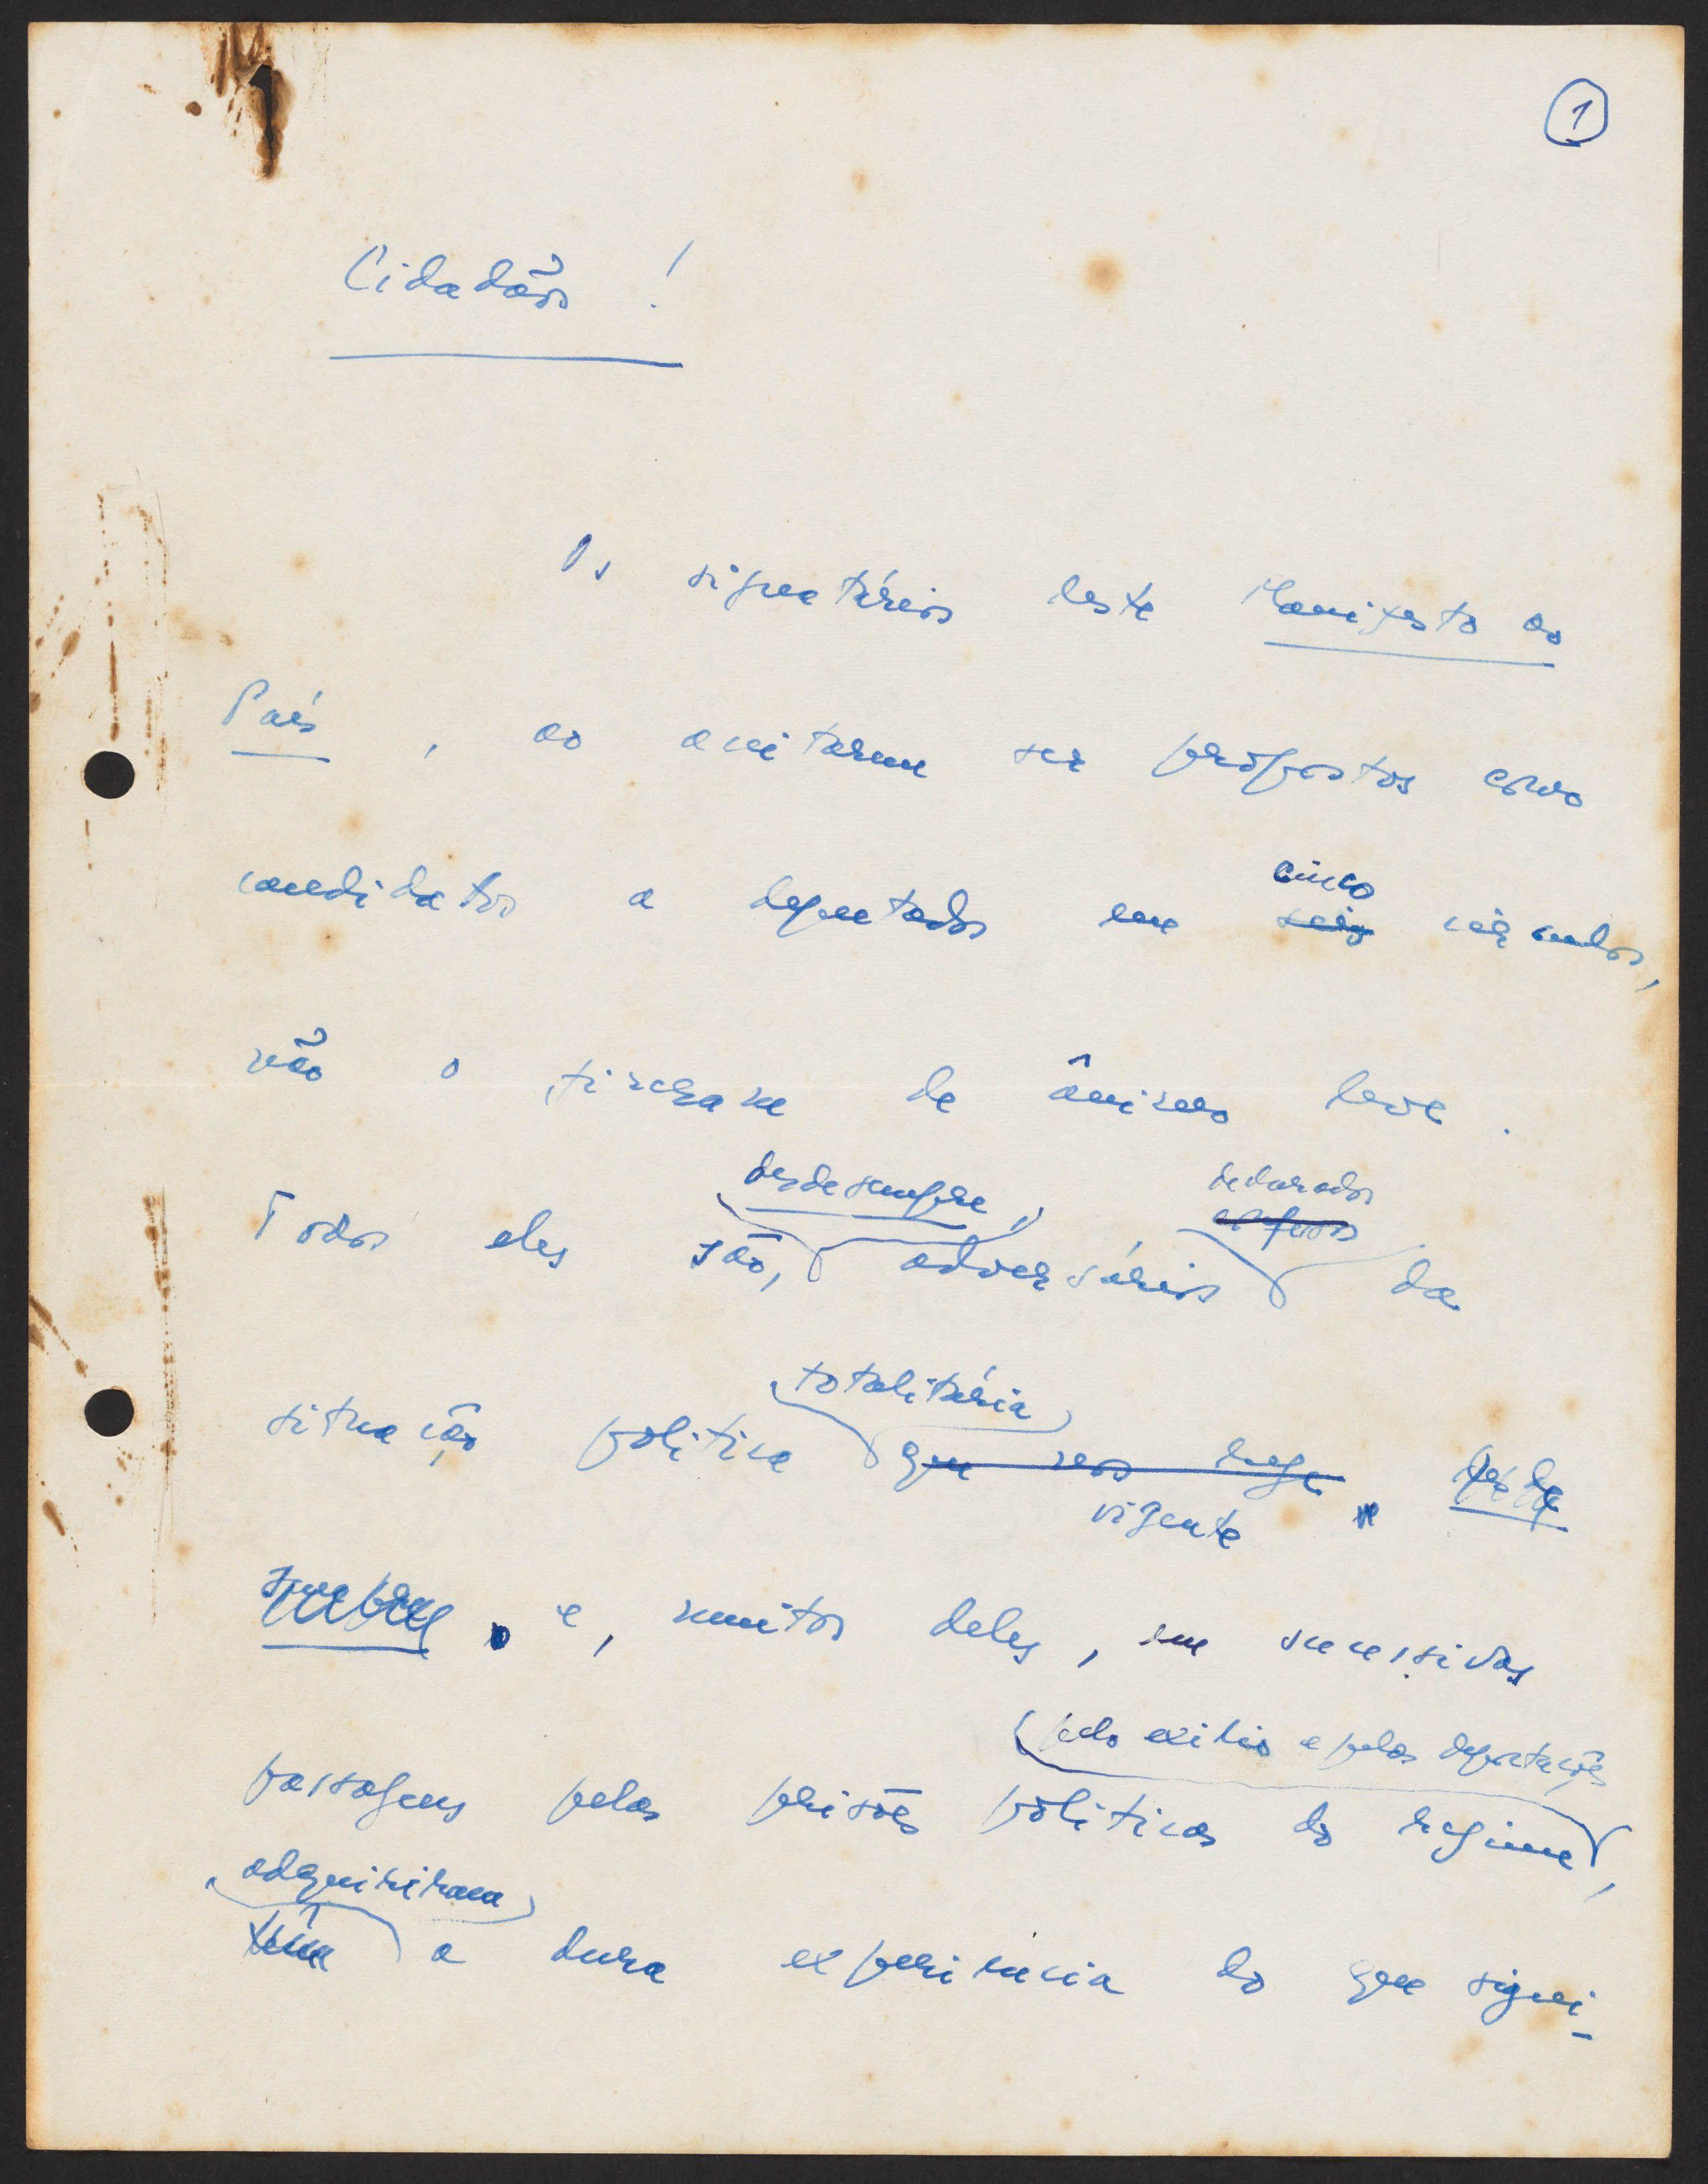 1
Cidadãos !
Os signatários deste Manifesto ao
País , ao aceitarem ser propostos como
cinco
candidatos a deputados em seis círculos,
não o fizeram de ânimo leve .
desde sempre, declarados
Todos eles são, adversários da
totalitária
situação política que nos rege desde
vigente
sempre e, muitos deles, em sucessivas
pelo exílio e pelas deportações
passagens pelas prisões políticas do regime,
adquiriram
têm a dura experiência do que signi-